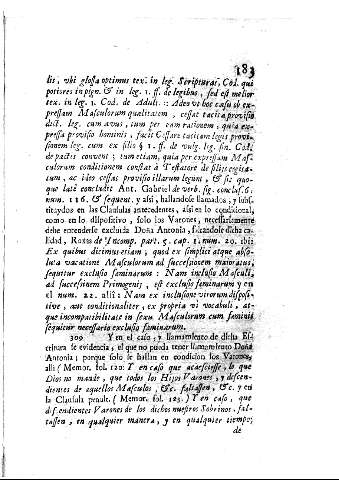 183
lis, vbi glossa optimus tex. in leg. Scripturas, Cod. qui
potiores in pign. & in leg. 1. ff. de legibus, sed est melior
tex. in leg. 1. Cod. de Adult. :: Adeo vt hoc casu ob ex-
pressam Masculorum qualitatem, cesset tacita provisio
dict. leg. cum avus, tum per eam rationem, quia ex-
pressa provisio hominis, facit Cessare tacitam legis provi-
sionem leg. cum ex filio § 1. ff. de vulg. leg. fin. Cod.
de pactis convent; tum etiam, quia per expressam Mas-
culorum conditionem constat à Testatore de sitis cogita-
tum, ac ideo cessas provisio illarum legum, & sic quo-
que latè concludit Ant. Gabriel de verb. sig. conclus. 6.
num. 116. & sequent. y assi, hallandose llamados, y subs-
tituydos en las Clausulas antecedentes, assi en lo condicional,
como en lo dispositivo, solo los Varones, necessariamente
debe entenderse excluida Doña Antonia, sacandose dicha ca-
lidad, Roxas de Incomp. part. 5. cap. 1. num. 20. ibi:
Ex quibus dicimus etiam, quod ex simplici atque abso-
luta vocatione Masculorum ad successionem maioratus,
sequitur exclusio fæminarum: Nam inclusio Masculi,
ad successionem Primogenij, est exclusio fæminarum y en
el num. 22. alli: Nam ex inclusione virorum disposi-
tive, aut conditionaliter, ex propria vi vocabuli, at-
que incompatibilitate in sexu Masculorum cum fæminis
sequitur necessario exclusio fæminarum.
309. Y en el caso, y llamamiento de dicha Es-
critura se evidencia, el que no pueda tener llamamiento Doña
Antonia; porque solo se hallan en condicion los Varones,
alli (Memor. fol. 120: Y en caso que acaeciesse, lo que
Dios no mande, que todos los Hijos Varones, y descen-
dientes de aquellos Masculos, &c. faltassen, &c. y en
la Clausula penult. (Memor. fol. 125.) Y en caso, que
descendientes Varones de los dichos nuestros Sobrinos, fal-
tassen, en qualquier manera, y en qualquier tiempo;
de